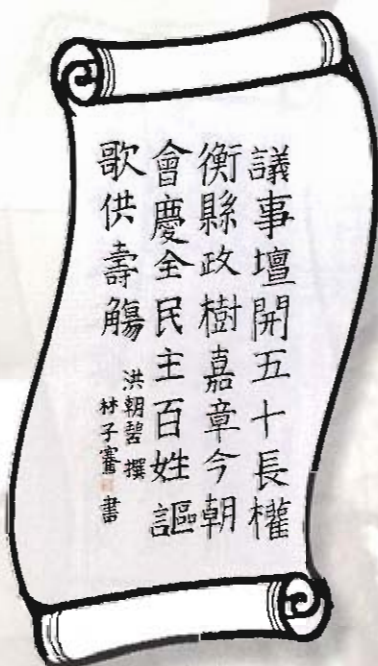 議事壇開五十長權
衡縣政樹嘉章今朝
會慶全民主百姓謳
歌供壽觴
洪朝碧 撰
林子騫 書